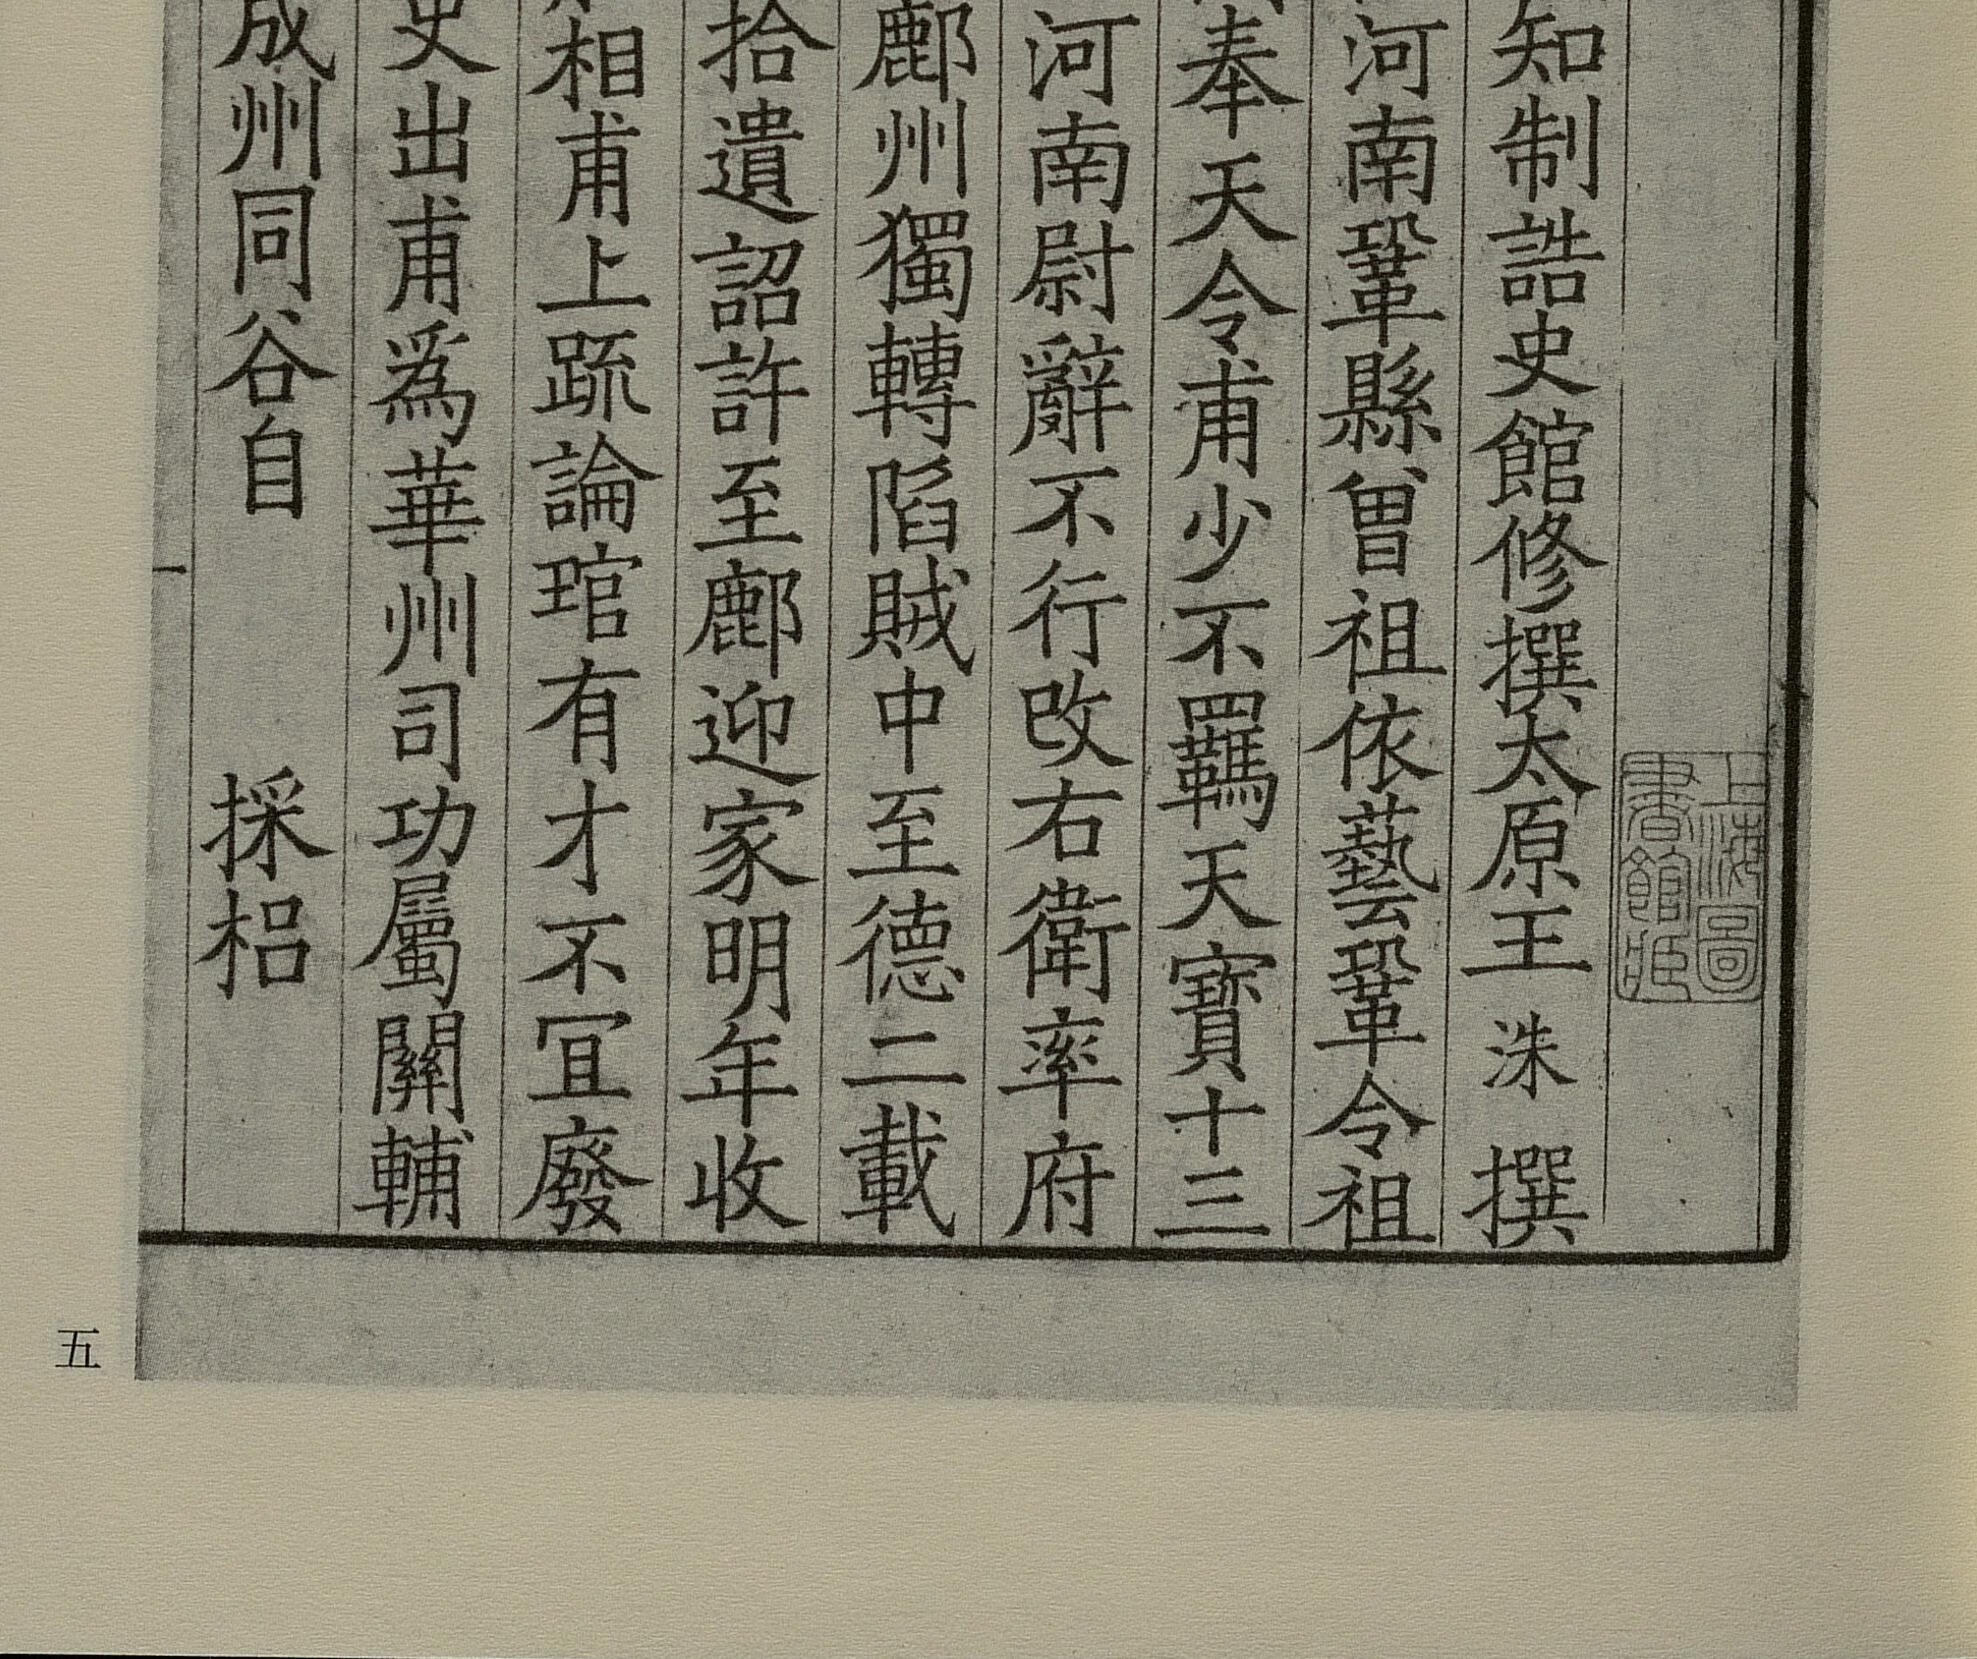 知制誥史館修撰太原王洙撰
河南鞏縣曾祖依藝鞏令祖
奉天令甫少不羈天寶十三
河南尉辭不行改右衛率府
鄜州獨轉陷賊中至德二載
拾遺詔許至鄜迎家明年收
相甫上䟽論琯有才不冝廢
史出甫爲華州司功屬關輔
成州同谷自 採梠
上海圖書館藏
五